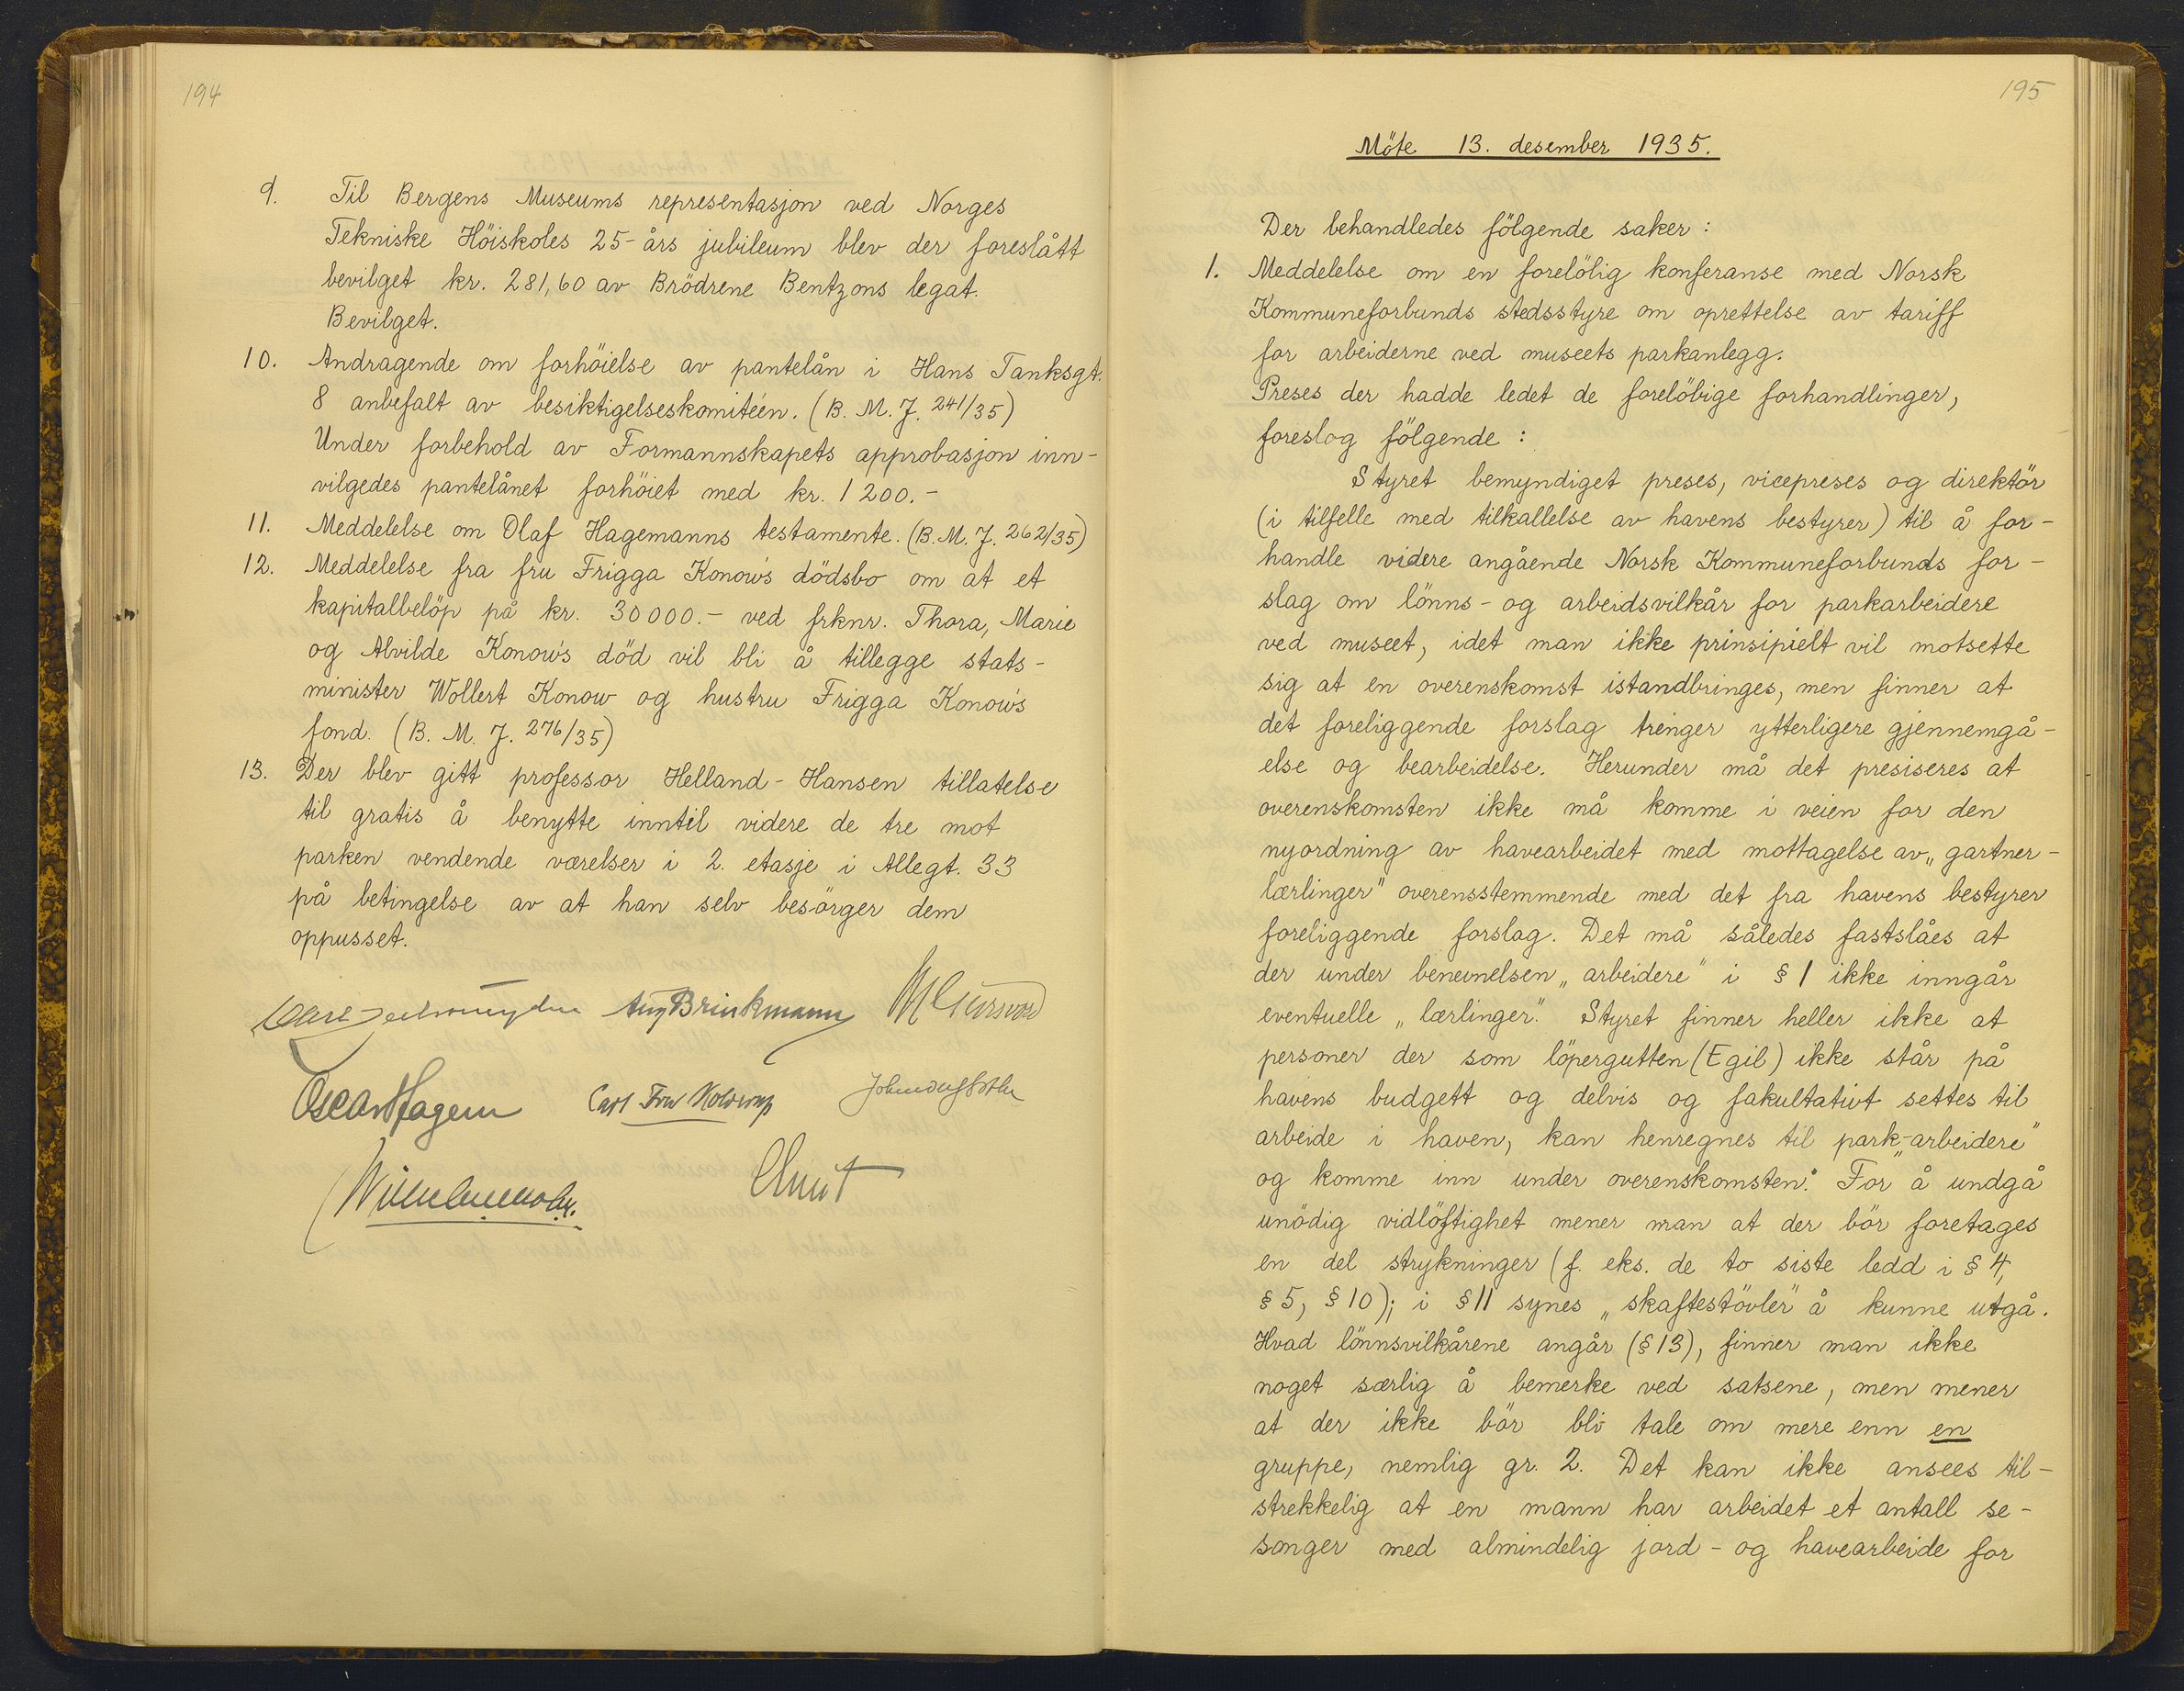 194
9. Til Bergens Museums representasjon ved Norges
Tekniske Höiskoles 25-års jubileum blev der foreslått
bevilget kr. 281,60 av Brödrene Bentzons legat.
Bevilget.
10. Andragende om forhöielse av pantelån i Hans Tanksgt.
8 anbefalt av besiktigelseskomitéen. (B. M. J. 241/35)
Under forbehold av Formannskapets approbasjon inn-
vilgedes pantelånet forhöiet med kr. 1200.-
11. Meddelelse om Olaf Hagemanns testamente. (B. M. J. 262/35)
12. Meddelelse fra fru Frigga Konow's dödsbo om at et
kapitalbelöp på kr. 30000.- ved frknr. Thora, Marie
og Alvilde Konow's död vil bli å tillegge stats-
minister Wollert Konow og hustru Frigga Konow's
fond. (B. M. J. 276/35)
13. Der blev gitt professor Helland-Hansen tillatelse
til gratis å benytte inntil videre de tre mot
parken vendende værelser i 2. etasje i Allegt. 33
på betingelse av at han selv besörger dem
oppusset.
Aug Brinkmann
Oscar Hagem Carl Fred Kolderup
195
Möte 13. desember 1935.
Der behandledes fölgende saker:
1. Meddelelse om en forelölig konferanse med Norsk
Kommuneforbunds stedsstyre om oprettelse av tariff
for arbeiderne ved museets parkanlegg.
Preses der hadde ledet de forelöbige forhandlinger,
foreslog fölgende:
Styret bemyndiget preses, vicepreses og direktör
(i tilfelle med tilkallelse av havens bestyrer) til å for-
handle videre angående Norsk Kommuneforbunds for-
slag om lönns- og arbeidsvilkår for parkarbeidere
ved museet, idet man ikke prinsipielt vil motsette
sig at en overenskomst istandbringes, men finner at
det foreliggende forslag trenger ytterligere gjennemgå-
else og bearbeidelse. Herunder må det presiseres at
overenskomsten ikke må komme i veien for den
nyordning av havearbeidet med mottagelse av „gartner-
lærlinger" overensstemmende med det fra havens bestyrer
foreliggende forslag. Det må således fastslåes at
der under benevnelsen „arbeidere" i § 1 ikke inngår
eventuelle „lærlinger". Styret finner heller ikke at
personer der som löpergutten (Egil) ikke står på
havens budgett og delvis og fakultativt settes til
arbeide i haven, kan henregnes til park-„arbeidere"
og komme inn under overenskomsten. For å undgå
unödig vidlöftighet mener man at der bör foretages
en del strykninger (f. eks. de to siste ledd i § 4,
§ 5, § 10); i § 11 synes „skaftestövler" å kunne utgå.
Hvad lönnsvilkårene angår (§ 13), finner man ikke
noget særlig å bemerke ved satsene, men mener
at der ikke bör bli tale om mere enn en
gruppe, nemlig gr. 2. Det kan ikke ansees til-
strekkelig at en mann har arbeidet et antall se-
songer med almindelig jord- og havearbeide for